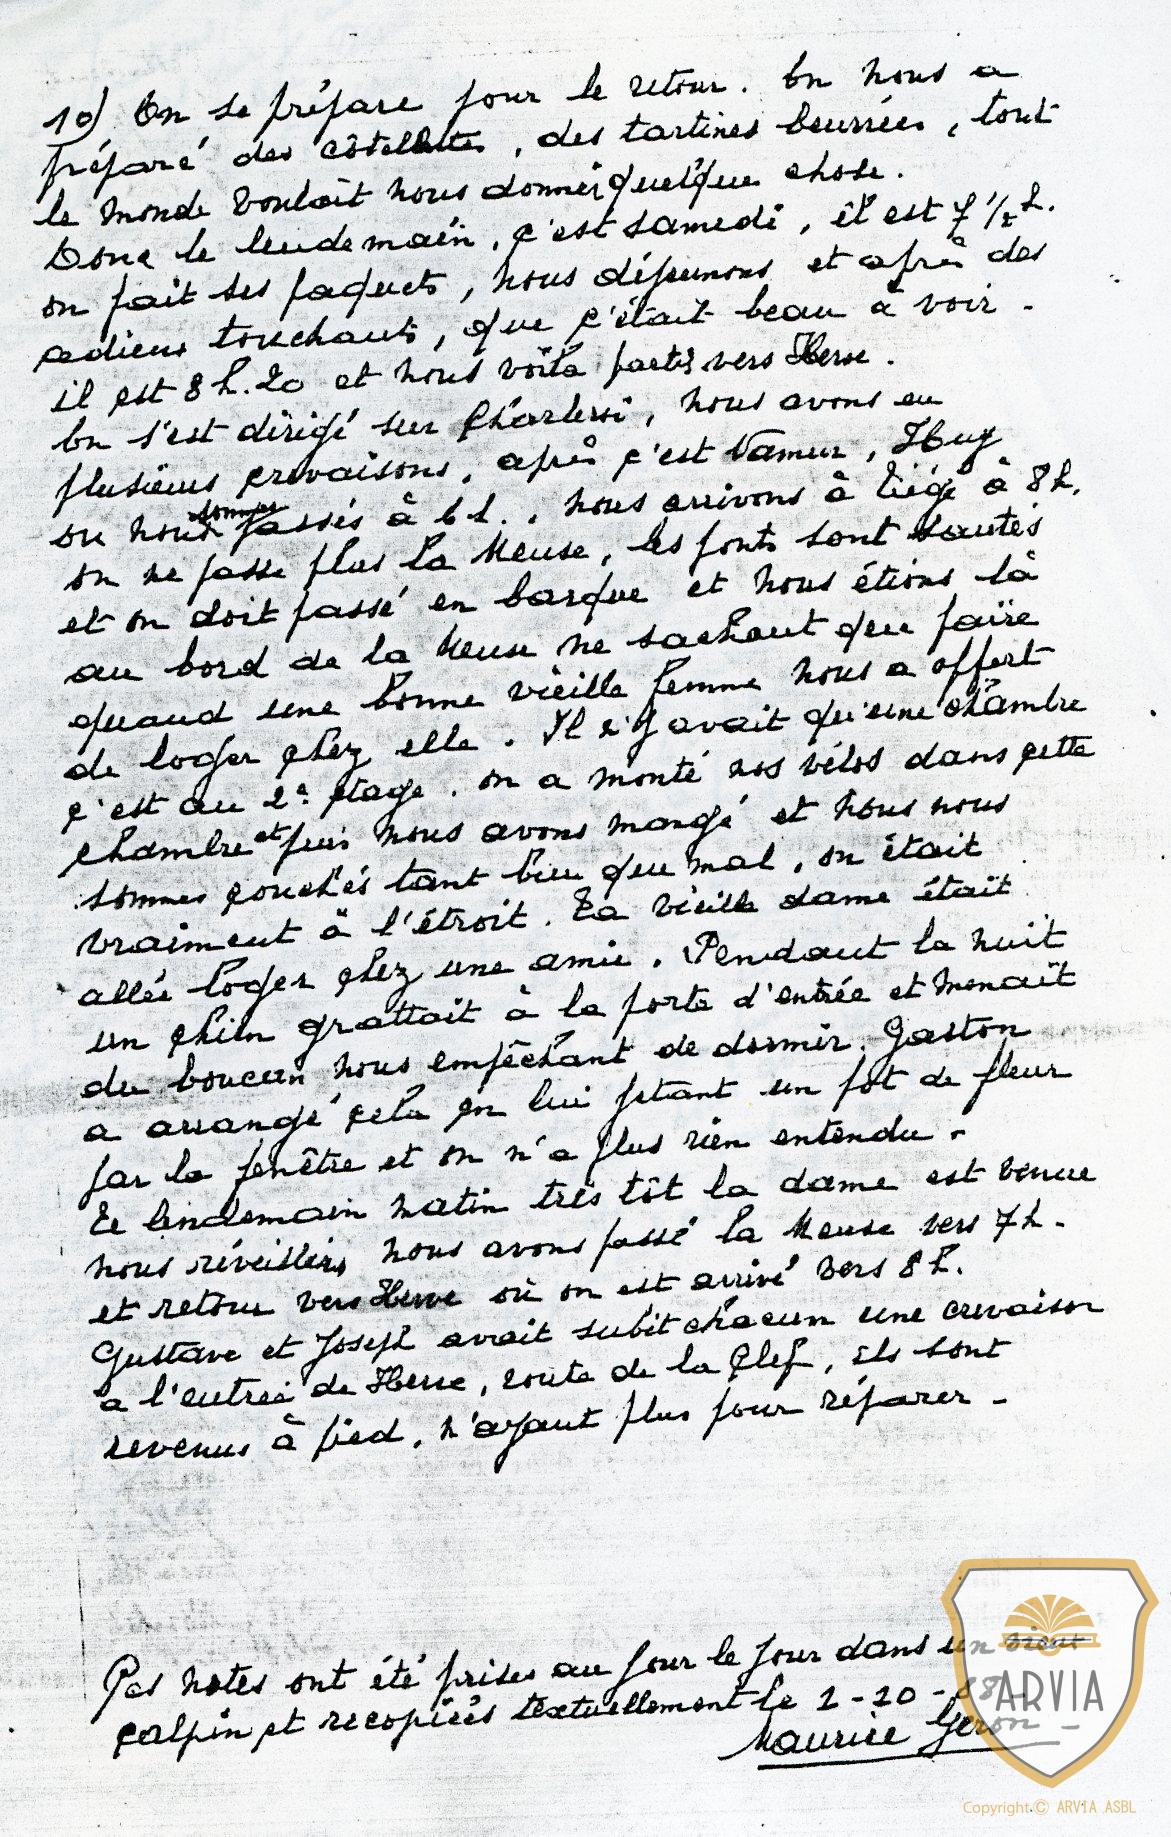 10) On se prépare pour le retour. On nous a
préparé des côtelettes, des tartines beurrées, tout
le monde voulait nous donner quelque chose.
Donc le lendemain, c'est samedi, il est 7 1/2 h.
on fait ses paquets, nous déjeunons et après des
adieux touchants, que c'était beau à voir -
il est 8 h. 20 et nous voilà partis vers Herve.
On s'est dirigé sur Charleroi, nous avons eu
plusieurs crevaisons, après c'est Namur, Huy
ou nous sommes passés à 6 h., nous arrivons à Liége à 8 h.
on ne passe plus la Meuse, les ponts sont sautés
et on doit passé en barque et nous étions là
au bord de la Meuse ne sachant que faire
quand une bonne vieille femme nous a offert
de loger chez elle. Il n'y avait qu'une chambre
c'est au 2e étage. on a monté nos vélos dans cette
chambre et puis nous avons mangé et nous nous
sommes couchés tant bien que mal, on était
vraiment à l'étroit. La vieille dame était
allée loger chez une amie. Pendant la nuit
un chien grattait à la porte d'entrée et menait
du boucan nous empêchant de dormir. Gaston
a arrangé cela en lui jetant un pot de fleur
par la fenêtre et on n'a plus rien entendu -
Le lendemain matin très tôt la dame est venue
nous réveiller, nous avons passé la Meuse vers 7 h -
et retour vers Herve où on est arrivé vers 8 h.
Gustave et Joseph avait subit chacun une crevaison
a l'entrée de Herve, route de la Clef, ils sont
revenus à pied, n'ayant plus pour réparer -
Ces notes ont été prises au jour le jour dans un vieux
calpin et recopiées textuellement le 2-10-88
Maurice Geron -
ARVIA
Copyright © ARVIA ASBL